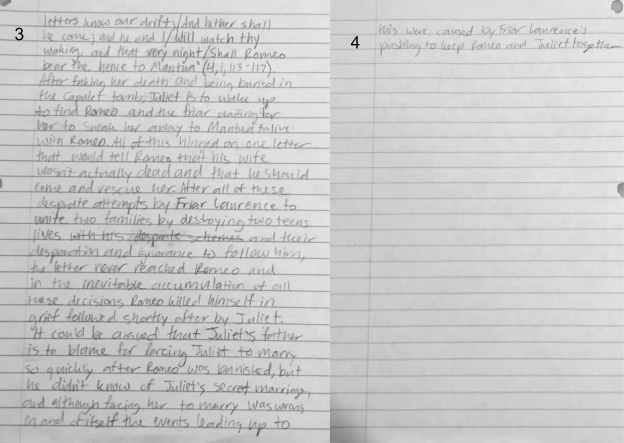 3
letters know our drift,/And hither shall
he come; and he and I/Will watch thy
waking, and that very night/Shall Romeo
bear the hence to Mantua" (4,1,113-117).
After faking her death and being buried in
the Capulet tomb, Juliet is to wake up
to find Romeo and the friar waiting for
her to sneak her away to Mantua to live
with Romeo. All of this hinged on one letter
that would tell Romeo that his wife
wasn't actually dead and that he should
come and rescue her. After all of these
desprate attempts by Friar Laurence to
unite two families by destoying two teens
lives with his desprate schemes and their
desparation and ignorance to follow him,
the letter never reached Romeo and
in the inevitable accumulation of all
these decisions Romeo killed himself in
grief followed shortly after by Juliet.
It could be argued that Juliet's father
is to blame for forcing Juliet to marry
so quickly after Romeo was banished, but
he didn't know of Juliet's secret marriage,
and although forcing her to marry was wrong
in and of itself the events leading up to
4
this were caused by Friar Laurence's
pushing to keep Romeo and Juliet together